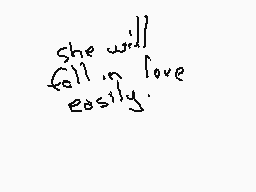 she will
fall in love
easily.